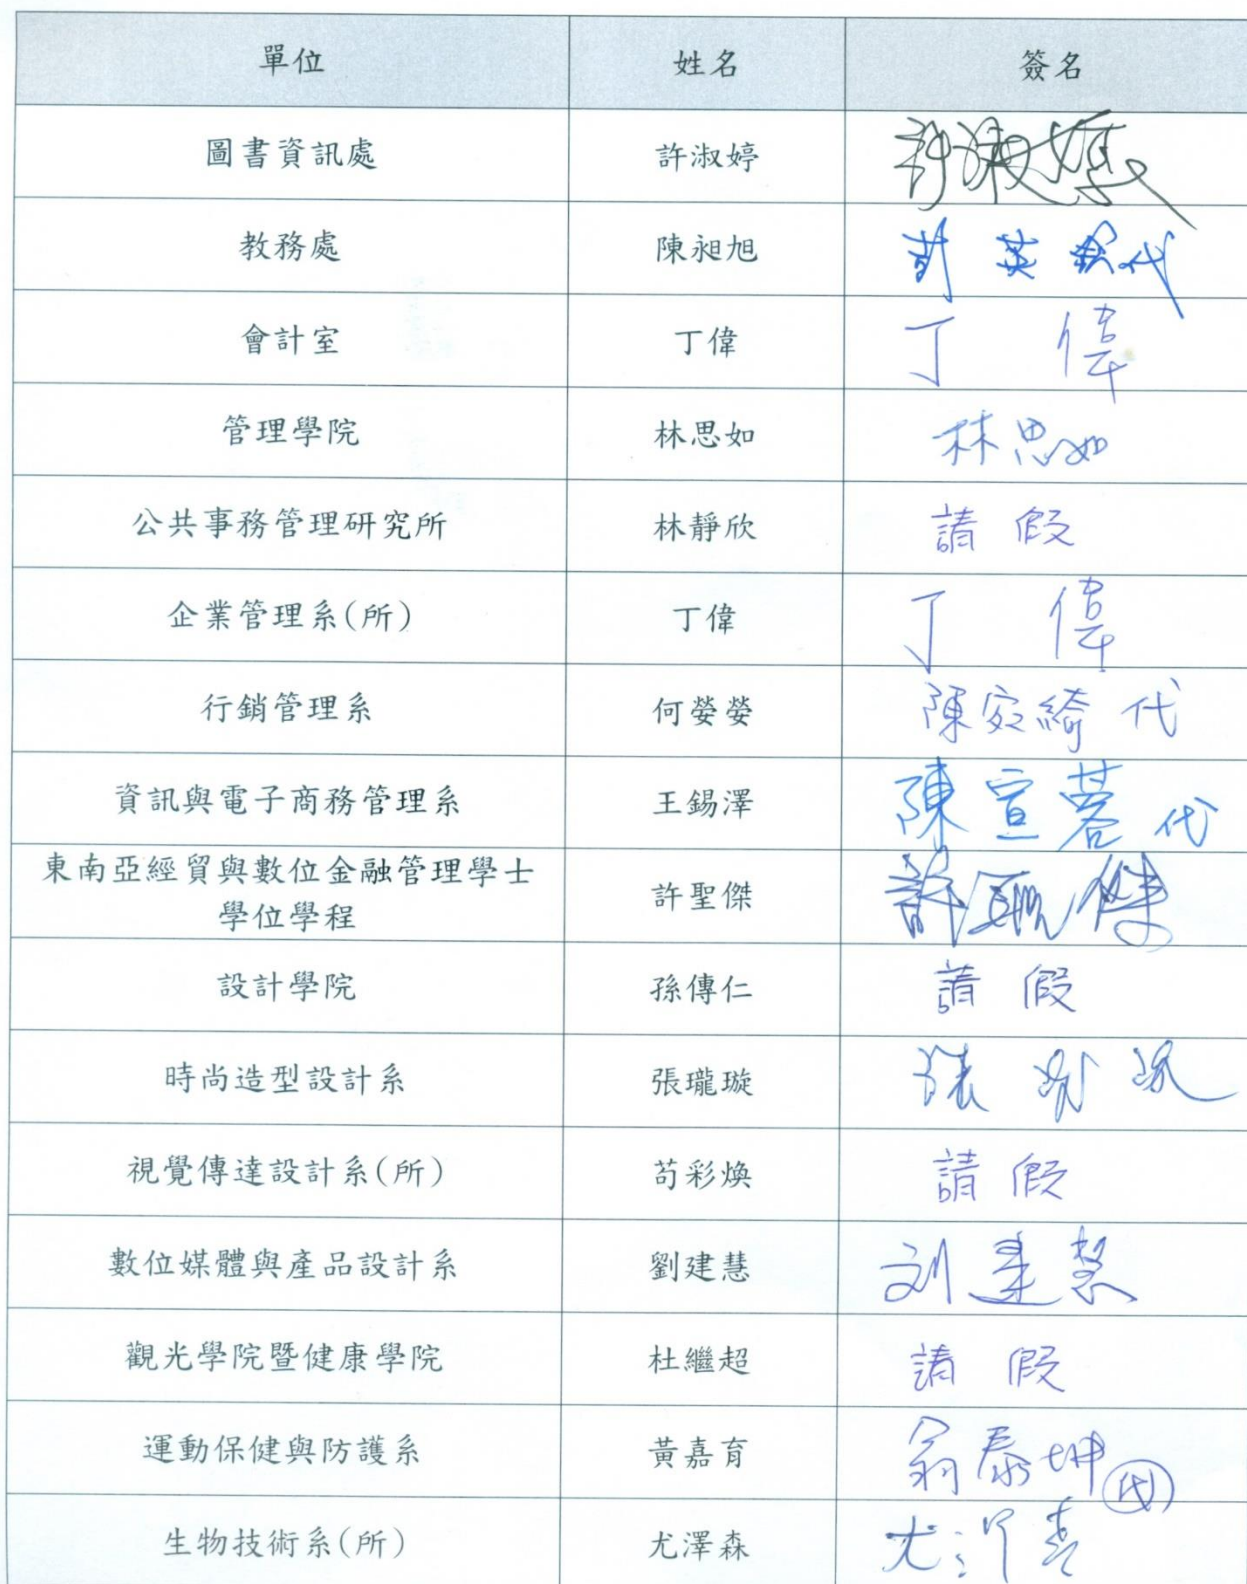 單位 姓名 簽名
圖書資訊處 許淑婷 許淑婷
教務處 陳昶旭 代
會計室 丁偉 丁偉
管理學院 林思如 林思如
公共事務管理研究所 林靜欣 請假
企業管理系(所) 丁偉 丁偉
行銷管理系 何嫈嫈 陳宛綺代
資訊與電子商務管理系 王錫澤 陳宣蓉代
東南亞經貿與數位金融管理學士
學位學程 許聖傑 許聖傑
設計學院 孫傳仁 請假
時尚造型設計系 張瓏璇 張
視覺傳達設計系(所) 苟彩煥 請假
數位媒體與產品設計系 劉建慧 刘建慧
觀光學院暨健康學院 杜繼超 請假
運動保健與防護系 黃嘉育 翁泰坤代
生物技術系(所) 尤澤森 尤